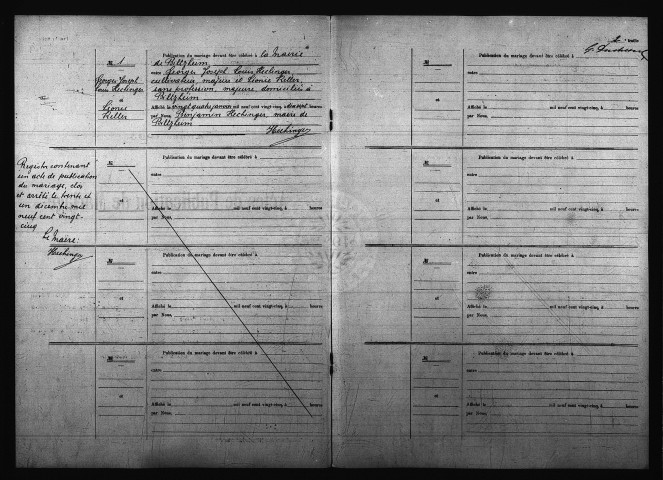 № 1
Georges Joseph
Louis Hechinger
et
Léonie
Keller
Publication du mariage devant être célébré à la Mairie
de Piltzheim
entre Georges Joseph Louis Hechinger
cultivateur, majeur et Léonie Keller
sans profession, majeure, domiciliés à
Piltzheim
Affiché le vingt quatre janvier mil neuf cent vingt-cinq, à heure
par Nous, Benjamin Hechinger, maire de
Piltzheim
Hechinger
Registre contenant
un acte de publication
du mariage, clos
et arrêté le trente et
un décembre mil
neuf cent vingt-
cinq
Le Maire:
Hechinger
№
et
Publication du mariage devant être célébré à
entre
Affiché le mil neuf cent vingt-cinq, à heure
par Nous,
№
et
Publication du mariage devant être célébré à
entre
Affiché le mil neuf cent vingt-cinq, à heure
par Nous,
№
et
Publication du mariage devant être célébré à
entre
Affiché le mil neuf cent vingt-cinq, à heure
par Nous,
feuille
№
et
Publication du mariage devant être célébré à
entre
Affiché le mil neuf cent vingt-cinq, à heure
par Nous,
№
et
Publication du mariage devant être célébré à
entre
Affiché le mil neuf cent vingt-cinq, à heure
par Nous,
№
et
Publication du mariage devant être célébré à
entre
Affiché le mil neuf cent vingt-cinq, à heure
par Nous,
№
et
Publication du mariage devant être célébré à
entre
Affiché le mil neuf cent vingt-cinq, à heure
par Nous,